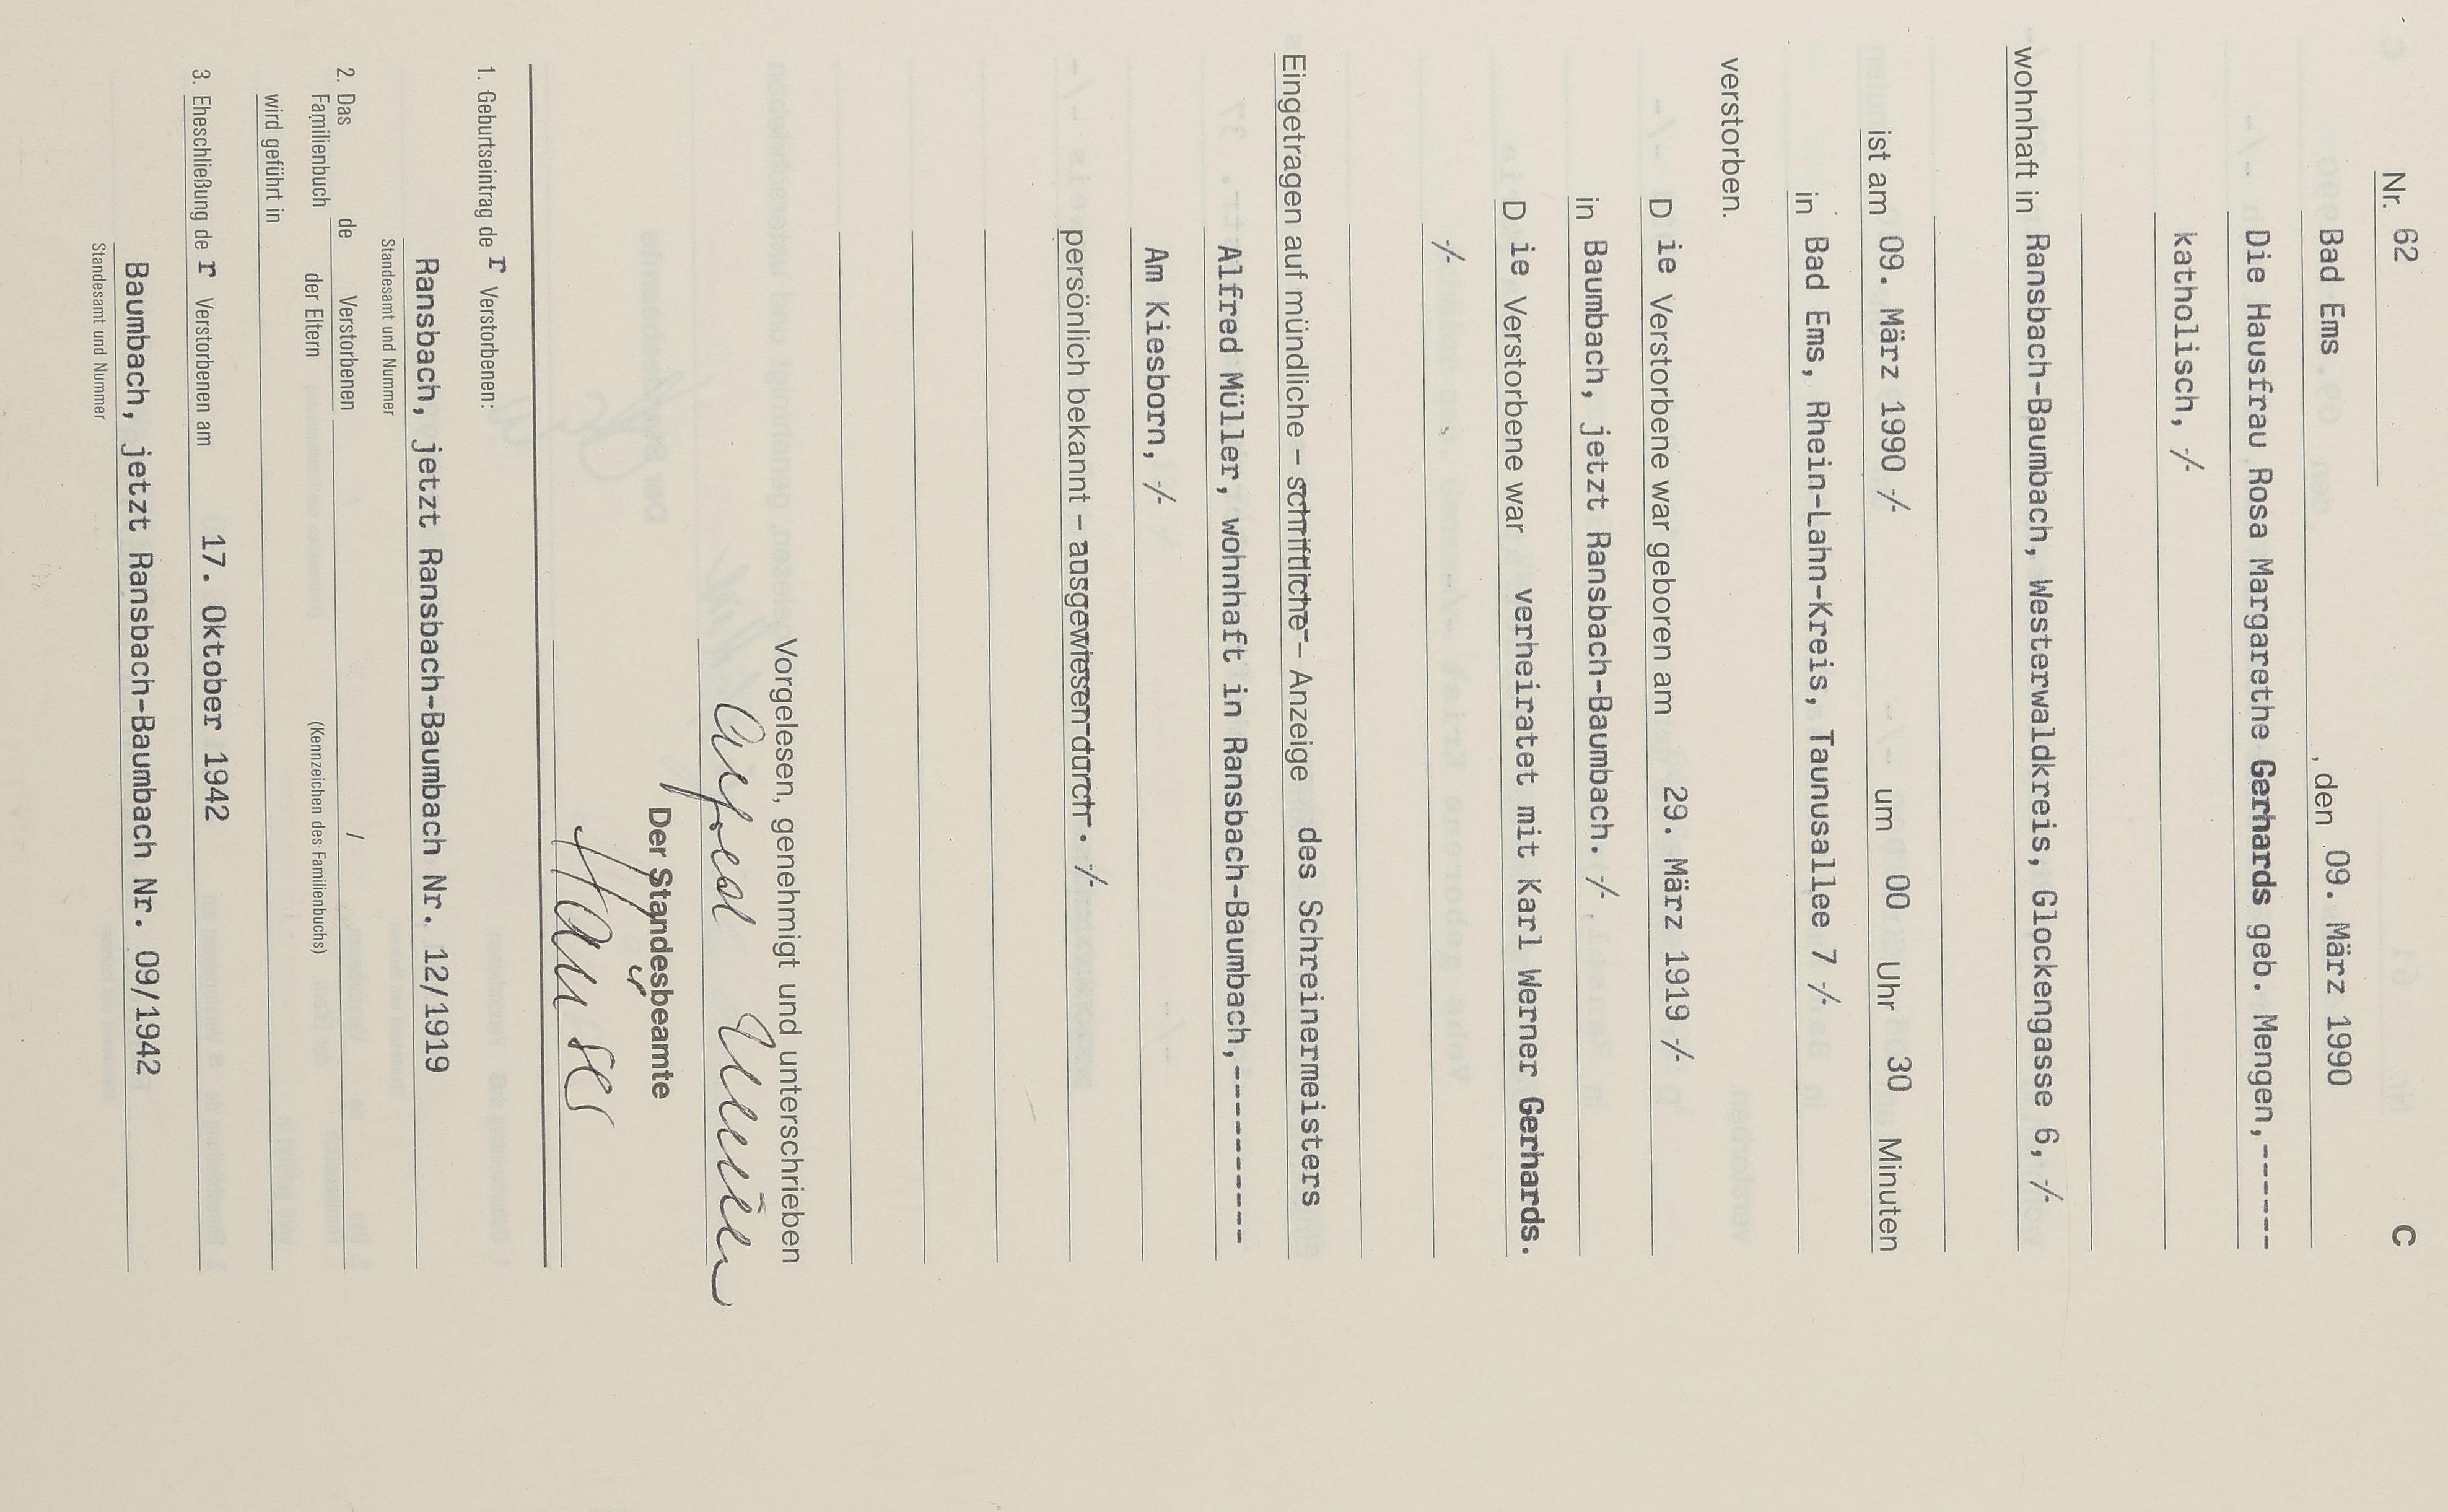 C
Nr. 62
Bad Ems, den 09. März 1990
Die Hausfrau Rosa Margarethe Gerhards geb. Mengen,------
katholisch, -/-
wohnhaft in Ransbach-Baumbach, Westerwaldkreis, Glockengasse 6, -/-
ist am 09. März 1990 -/- um 00 Uhr 30 Minuten
in Bad Ems, Rhein-Lahn-Kreis, Taunusallee 7 -/-
verstorben.
D ie Verstorbene war geboren am 29. März 1919 -/-
in Baumbach, jetzt Ransbach-Baumbach. -/-
D ie Verstorbene war verheiratet mit Karl Werner Gerhards.
-/-
Eingetragen auf mündliche – schriftliche – Anzeige des Schreinermeisters
Alfred Müller, wohnhaft in Ransbach-Baumbach,----------
Am Kiesborn, -/-
persönlich bekannt – ausgewiesen durch. -/-
Vorgelesen, genehmigt und unterschrieben
Alfred Müller
Der Standesbeamte
Hauser
1. Geburtseintrag de r Verstorbenen:
Ransbach, jetzt Ransbach-Baumbach Nr. 12/1919
Standesamt und Nummer
2. Das Familienbuch de Verstorbenen /
der Eltern (Kennzeichen des Familienbuchs)
wird geführt in
3. Eheschließung de r Verstorbenen am 17. Oktober 1942
Baumbach, jetzt Ransbach-Baumbach Nr. 09/1942
Standesamt und Nummer